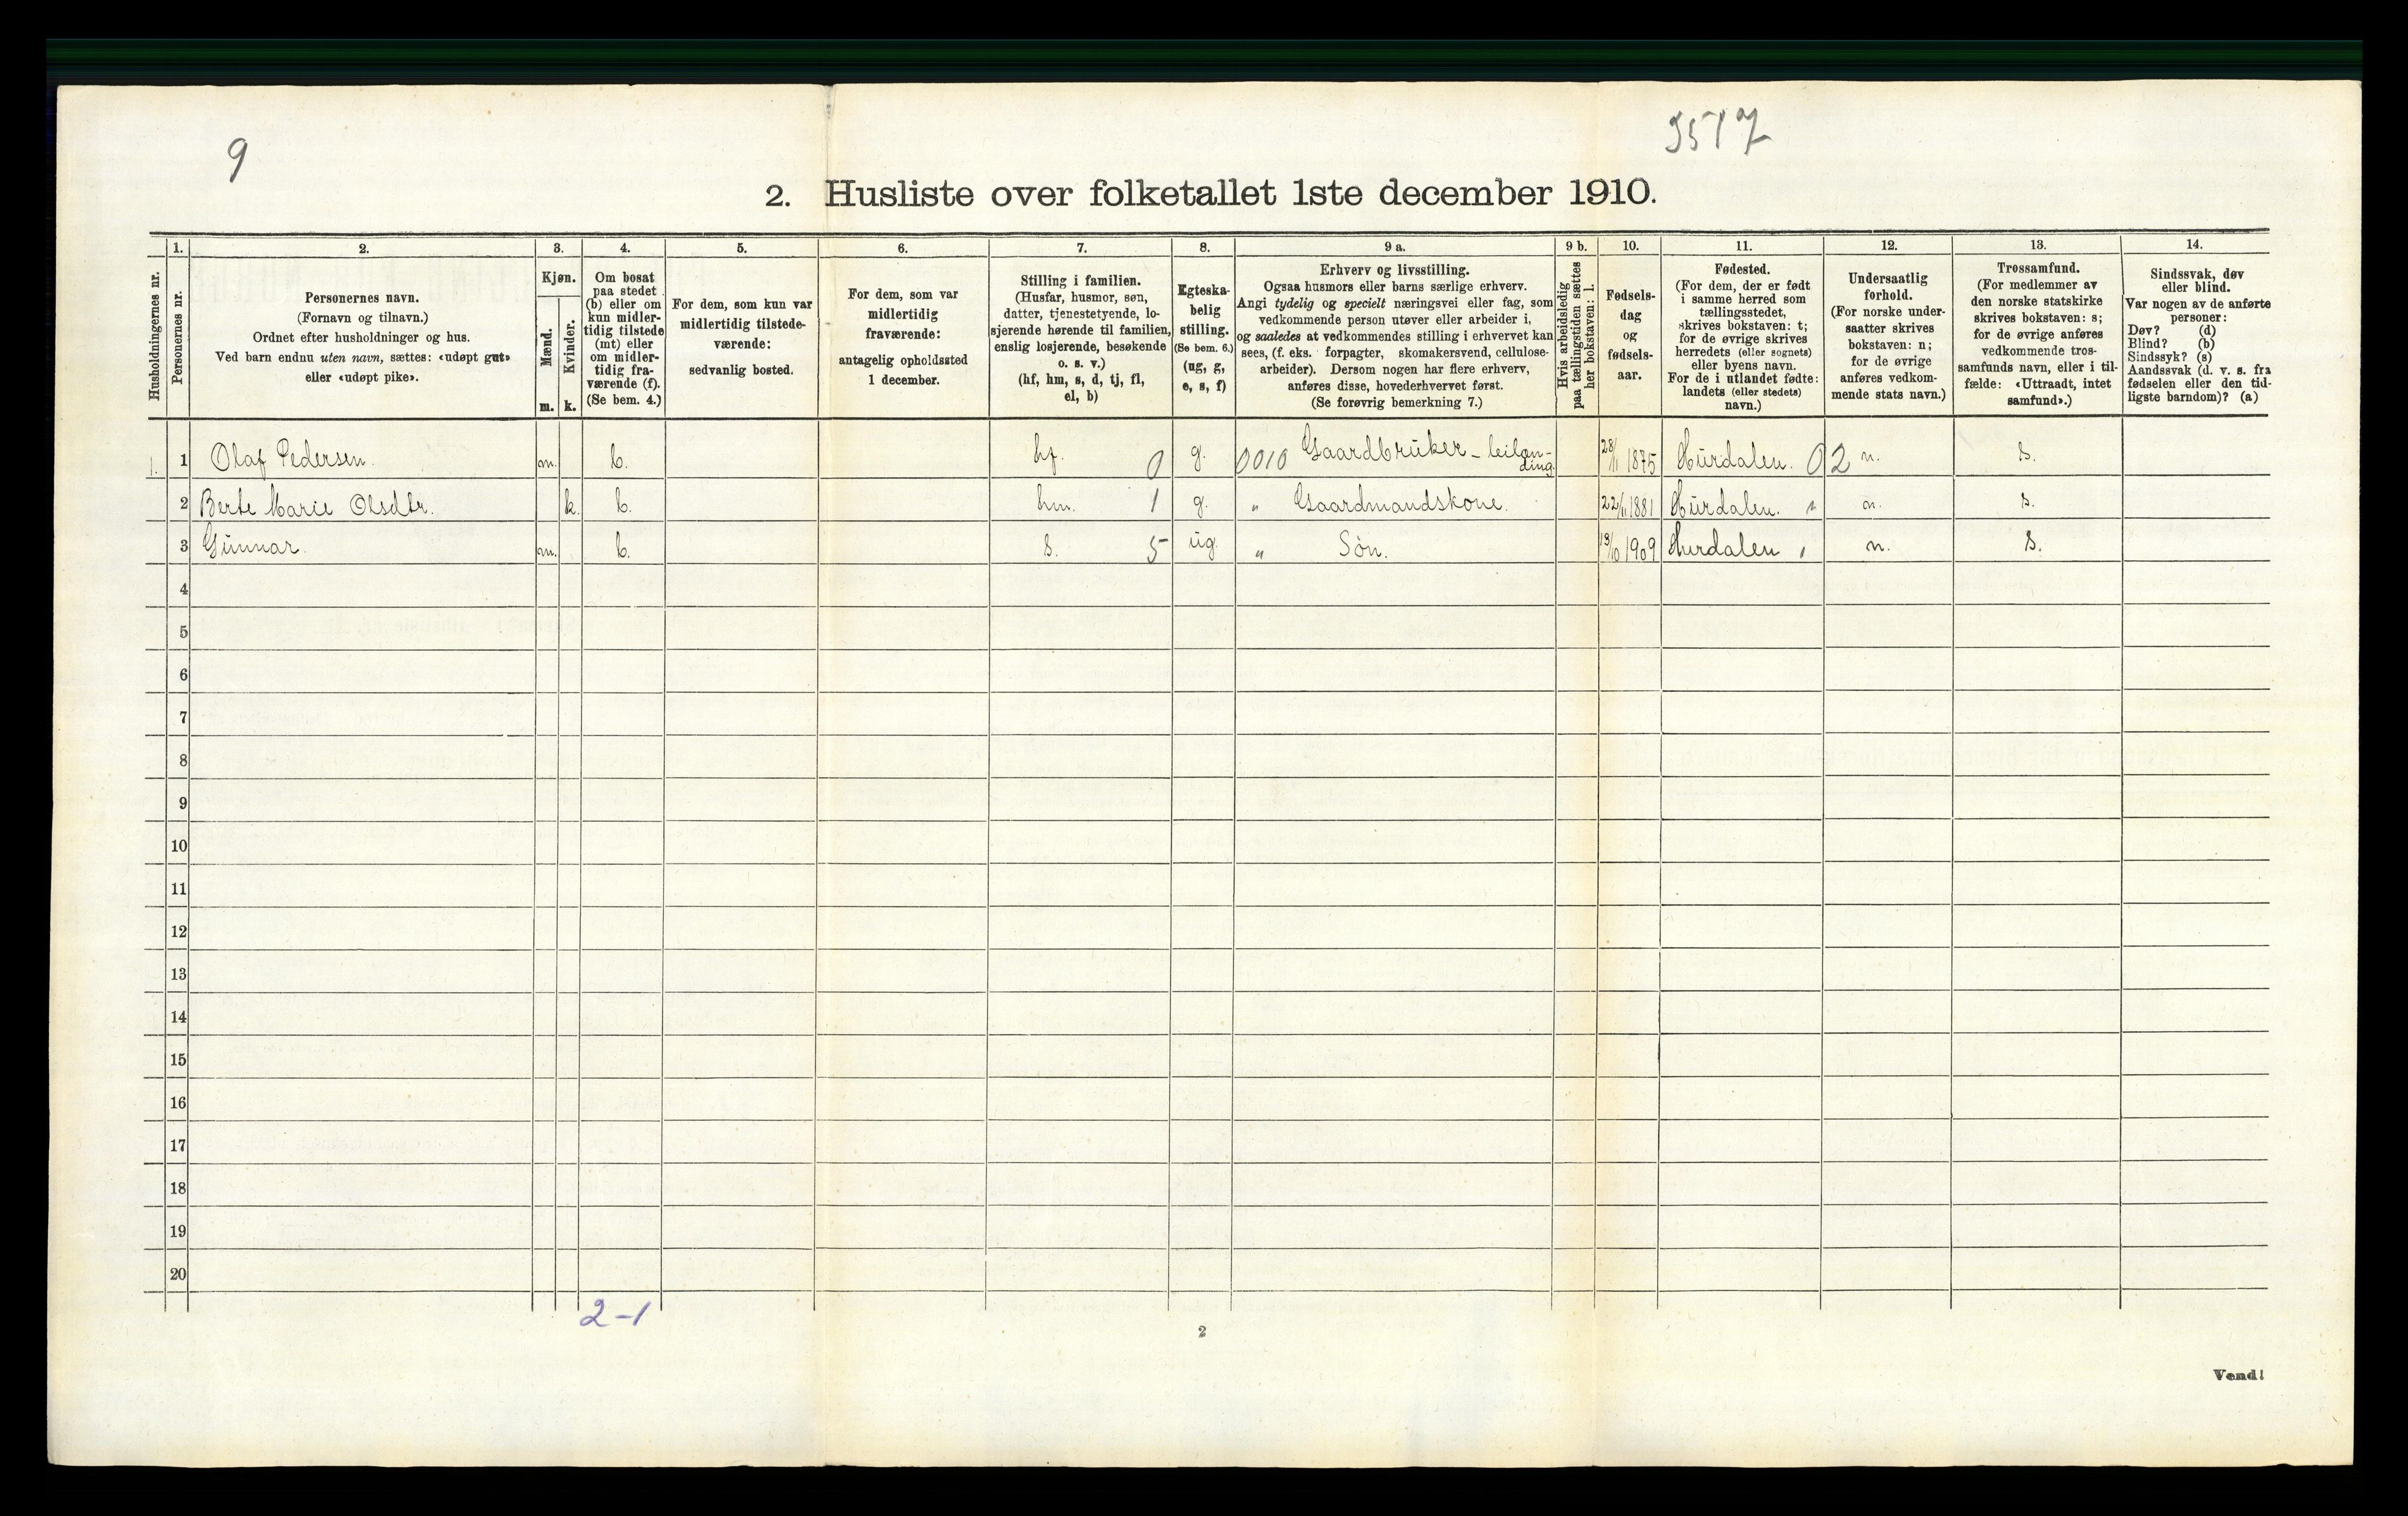 9
3517
2. Husliste over folketallet 1ste december 1910.
Husholdningernes nr.
1.
Personernes nr.
2.
Personernes navn.
(Fornavn og tilnavn.)
Ordnet efter husholdninger og hus.
Ved barn endnu uten navn, sættes: «udøpt gut»
eller «udøpt pike».
3.
Kjøn.
Mænd.
m.
Kvinder.
k.
4.
Om bosat
paa stedet
(b) eller om
kun midler-
tidig tilstede
(mt) eller
om midler-
tidig fra-
værende (f).
(Se bem. 4.)
5.
For dem, som kun var
midlertidig tilstede-
værende:
sedvanlig bosted.
6.
For dem, som var
midlertidig
fraværende:
antagelig opholdssted
1 december.
7.
Stilling i familien.
(Husfar, husmor, søn,
datter, tjenestetyende, lo-
sjerende hørende til familien,
enslig losjerende, besøkende
o. s. v.)
(hf, hm, s, d, tj, fl,
el, b)
8.
Egteska-
belig
stilling.
(Se bem. 6.)
(ug, g,
e, s, f)
9 a.
Erhverv og livsstilling.
Ogsaa husmors eller barns særlige erhverv.
Angi tydelig og specielt næringsvei eller fag, som
vedkommende person utøver eller arbeider i,
og saaledes at vedkommendes stilling i erhvervet kan
sees, (f. eks. forpagter, skomakersvend, cellulose-
arbeider). Dersom nogen har flere erhverv,
anføres disse, hovederhvervet først.
(Se forøvrig bemerkning 7.)
9 b.
Hvis arbeidsledig
paa tællingstiden sættes
her bokstaven: l.
10.
Fødsels-
dag
og
fødsels-
aar.
11.
Fødested.
(For dem, der er født
i samme herred som
tællingsstedet,
skrives bokstaven: t;
for de øvrige skrives
herredets (eller sognets)
eller byens navn.
For de i utlandet fødte:
landets (eller stedets)
navn.)
12.
Undersaatlig
forhold.
(For norske under-
saatter skrives
bokstaven: n;
for de øvrige
anføres vedkom-
mende stats navn.)
13.
Trossamfund.
(For medlemmer av
den norske statskirke
skrives bokstaven: s;
for de øvrige anføres
vedkommende tros-
samfunds navn, eller i til-
fælde: «Uttraadt, intet
samfund».)
14.
Sindssvak, døv
eller blind.
Var nogen av de anførte
personer:
Døv? (d)
Blind? (b)
Sindssyk? (s)
Aandssvak (d. v. s. fra
fødselen eller den tid-
ligste barndom)? (a)
1. 1 Olaf Pedersen. m. b. hf. 0 g. 0010 Gaardbruker - leilen-
ding. 28/11 1875 Hurdalen. 02 n. s.
2 Berte Marie Olsdtr. k. b. hm. 1 g. " Gaardmandskone. 22/11 1881 Hurdalen. " n. s.
3 Gunnar. m. b. s. 5 ug. " Søn. 19/10 1909 Hurdalen " n. s.
4
5
6
7
8
9
10
11
12
13
14
15
16
17
18
19
20
2-1
2
Vend!